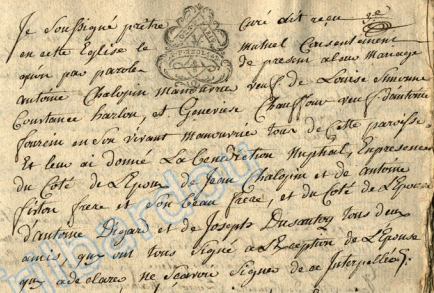 Je Soussigné prêtre Curé dit reçu
en cette Eglise le mutuel Consentement
qu'on par parole de present a leur mariage
antoine Chalopin manouvrie veuf de Louise Simonne
Constance harlon, et Genevieve Chauffour veuf d'antoine
fourein en Son vivant manouvrié tous de cette paroisse
Et leur ai donné La benediction Nuptial, En presence
du Coté de L'Epoux de Jean Chalopin et de antoine
frere et Son beau frere, et du Coté de L'Epouse
d'antoine Digard et de Joseph Dusautoy tous deux
amis, qui ont tous Signé a L'exception de L'Epouse
qui a declaré ne Scavoir Signé de ce Interpellée